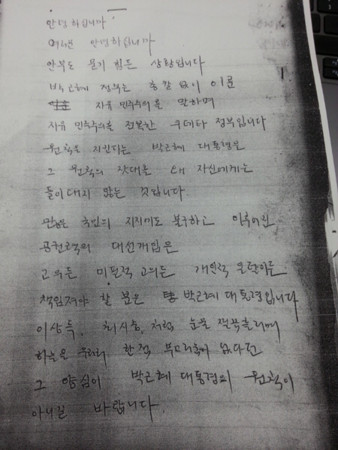 안녕하십니까
안녕하십니까
안부도 묻기 힘든 상황입니다
박근혜 정부는 총칼 없이 이룬
자유 민주주의를 말하며
자유 민주주의를 전복한 쿠데타 정부입니다
원칙을 지킨다는 박근혜 대통령은
그 원칙의 잣대를 왜 자신에게는
들이대지 않는 것입니까
많은 국민의 지지에도 불구하고 이루어진
공권력의 대선개입은
고의든 미필적 고의든 개인적 일탈이든
책임져야 할 분은 박근혜 대통령입니다
이상득, 최시중, 처럼 눈물 찔끔 흘리며
하늘을 우러러 한점 부끄럼이 없다던
그 양심이 박근혜 대통령의 원칙이
아니길 바랍니다.